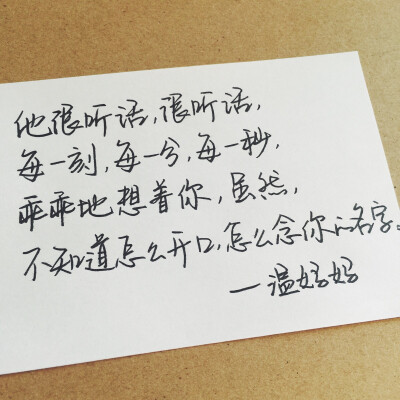 他很听话,很听话,
每一刻,每一分,每一秒,
乖乖地想着你,虽然,
不知道怎么开口,怎么念你的名字。
—温妈妈